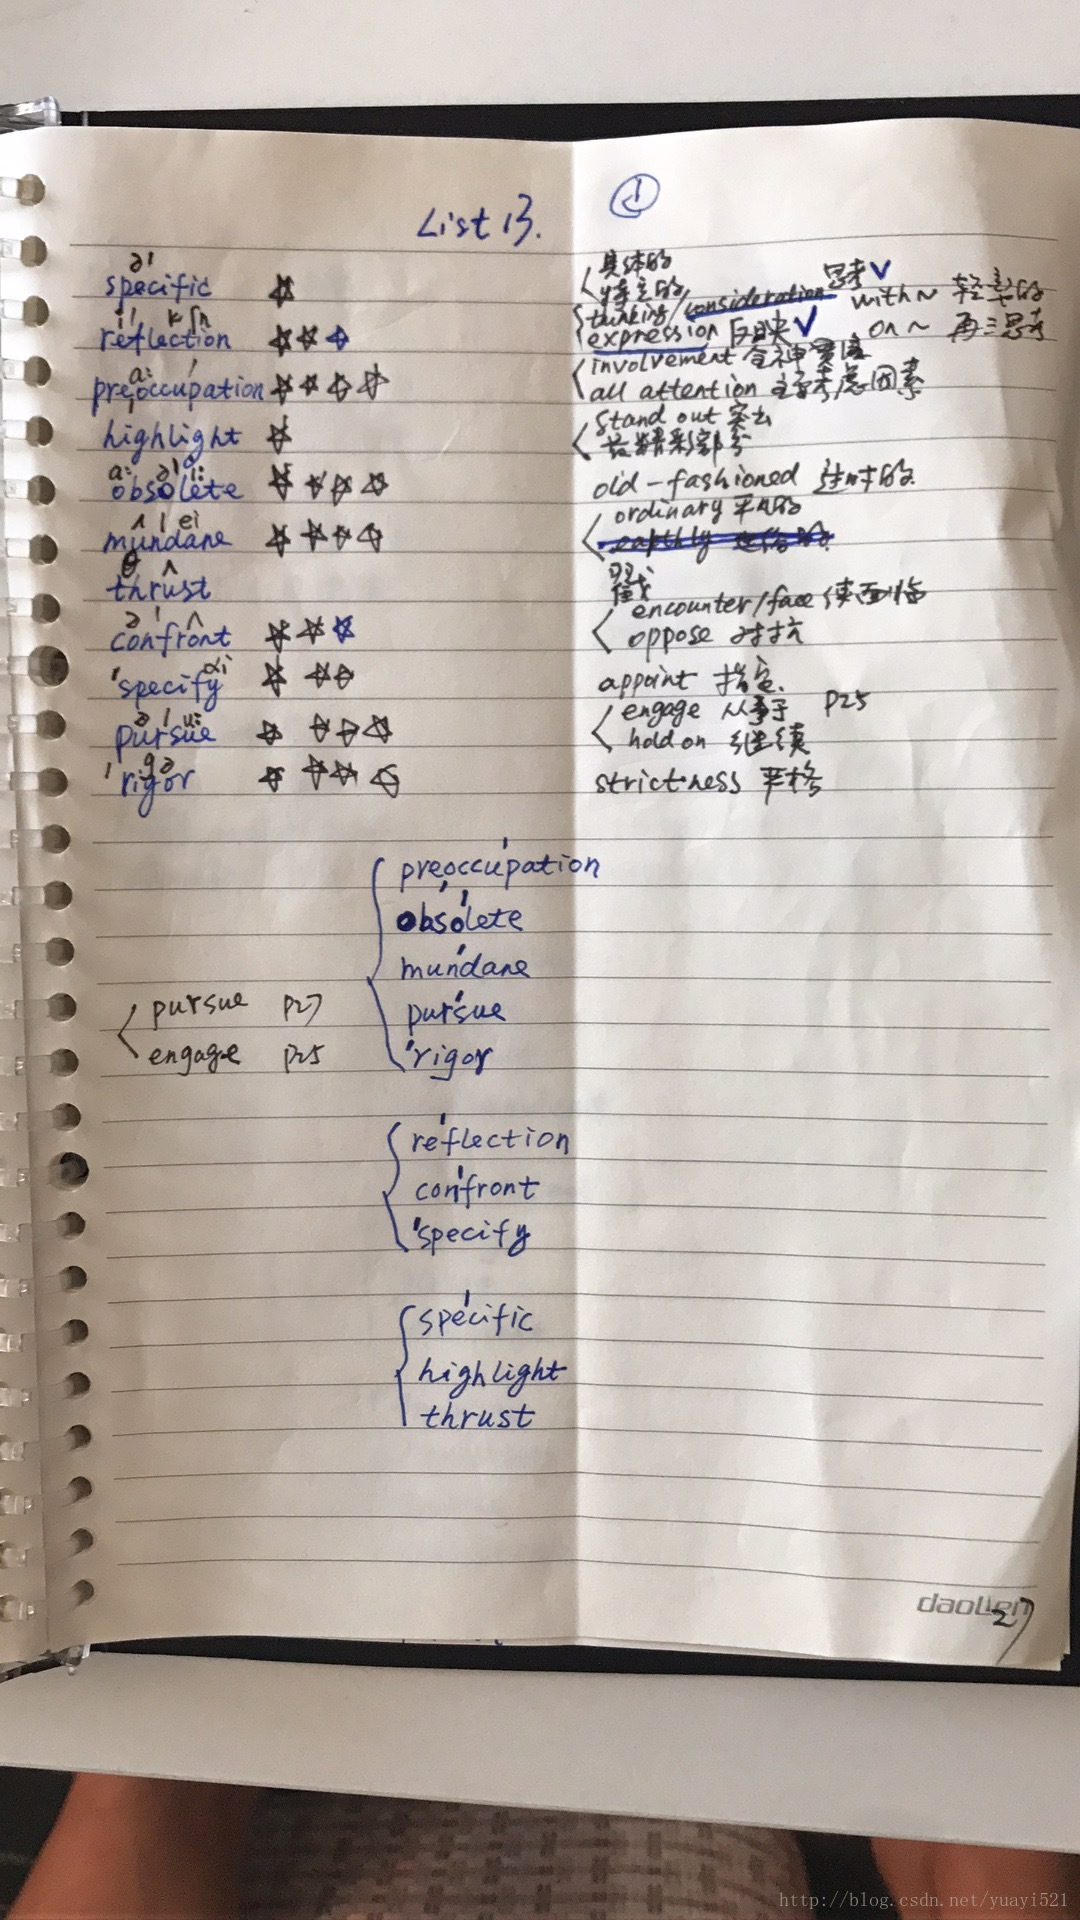 List 13. ①
specific 具体的
特定的
reflection thinking/consideration 思考✓ with~ 轻率的
expression 反映✓ on~ 再三思考
preoccupation involvement 全神贯注
all attention 主要考虑因素
highlight stand out 突出
最精彩部分
obsolete old-fashioned 过时的
mundane ordinary 平凡的
earthly
thrust 戳
confront encounter/face 使面临
oppose 对抗
'specify appoint 指定
pursue engage 从事于 P25
hold on 继续
'rigor strictness 严格
preoccupation
obsolete
mundane
pursue P27 pursue
engage P25 'rigor
reflection
confront
'specify
specific
highlight
thrust
daolen
27
http://blog.csdn.net/yuayi521